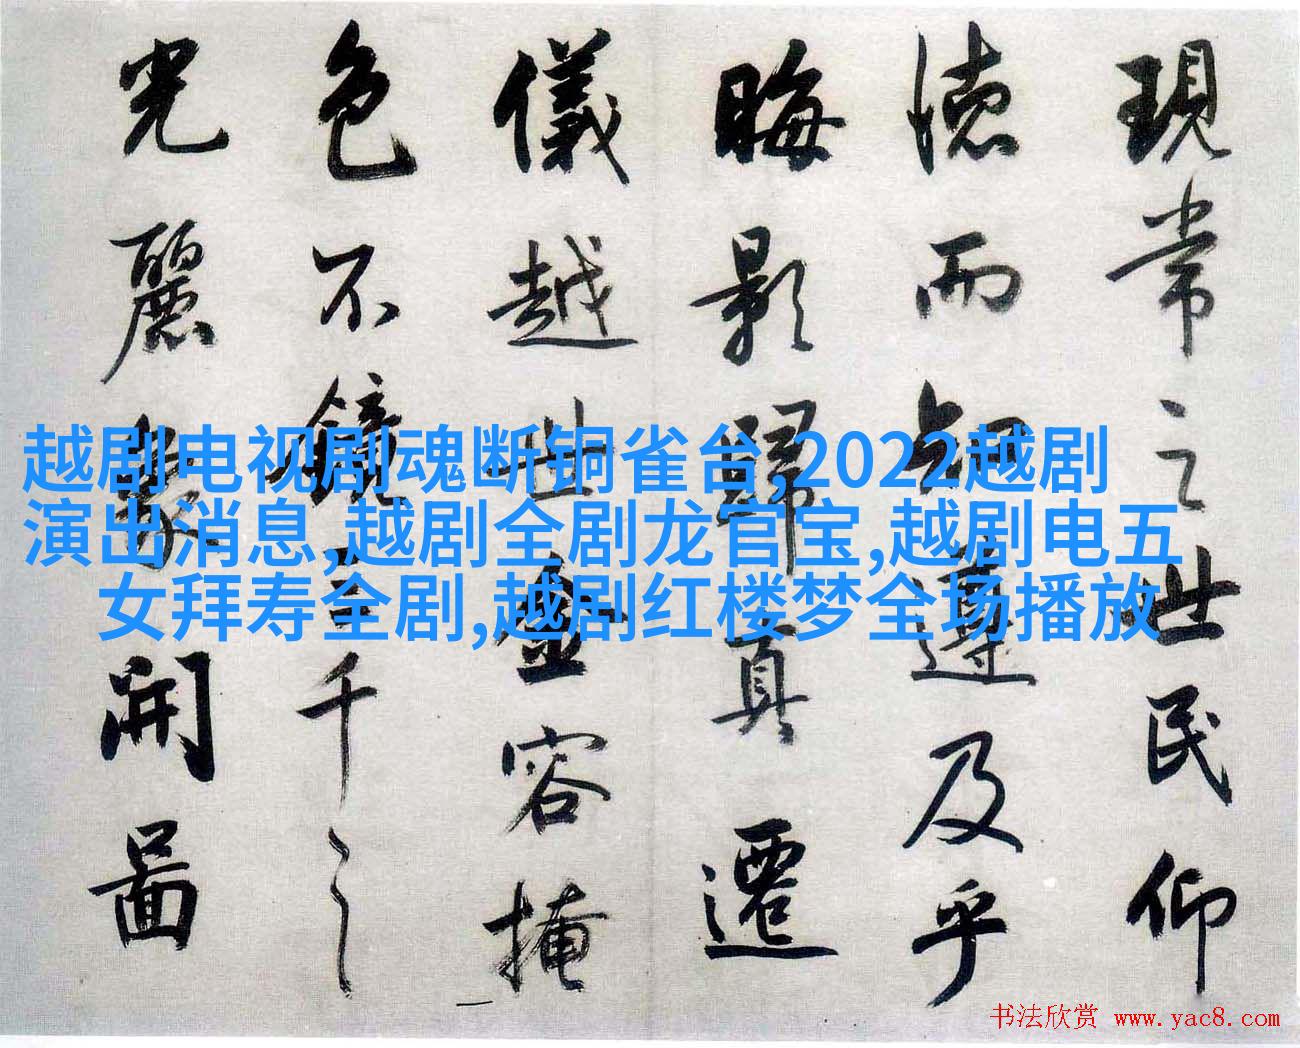 現常之世民仰
徳而知遵及乎
晦影歸真遷
儀越世容掩
色不鏡三千之
光麗象開圖
越剧电视剧魂断铜雀台,2022越剧
演出消息,越剧全剧龙官宝,越剧电五
女拜寿全剧,越剧红楼梦全场播放
书法欣赏 www.yac8.com